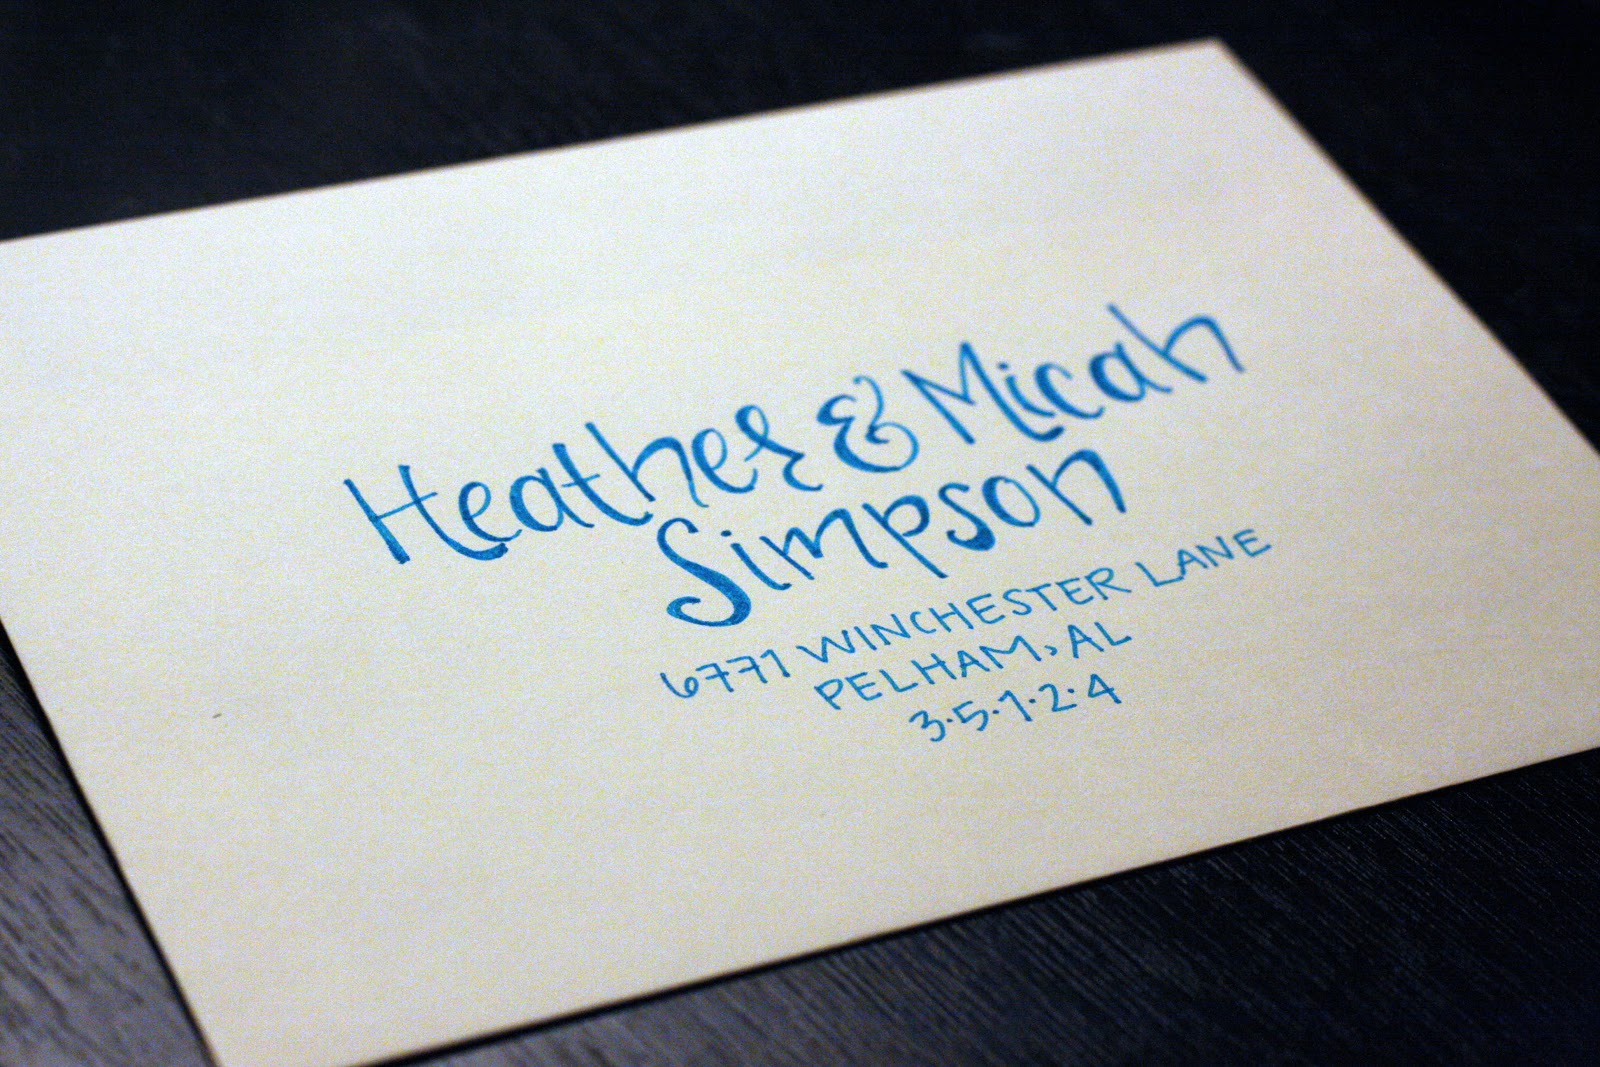 Heather & Micah
Simpson
6771 WINCHESTER LANE
PELHAM, AL
3·5·1·2·4